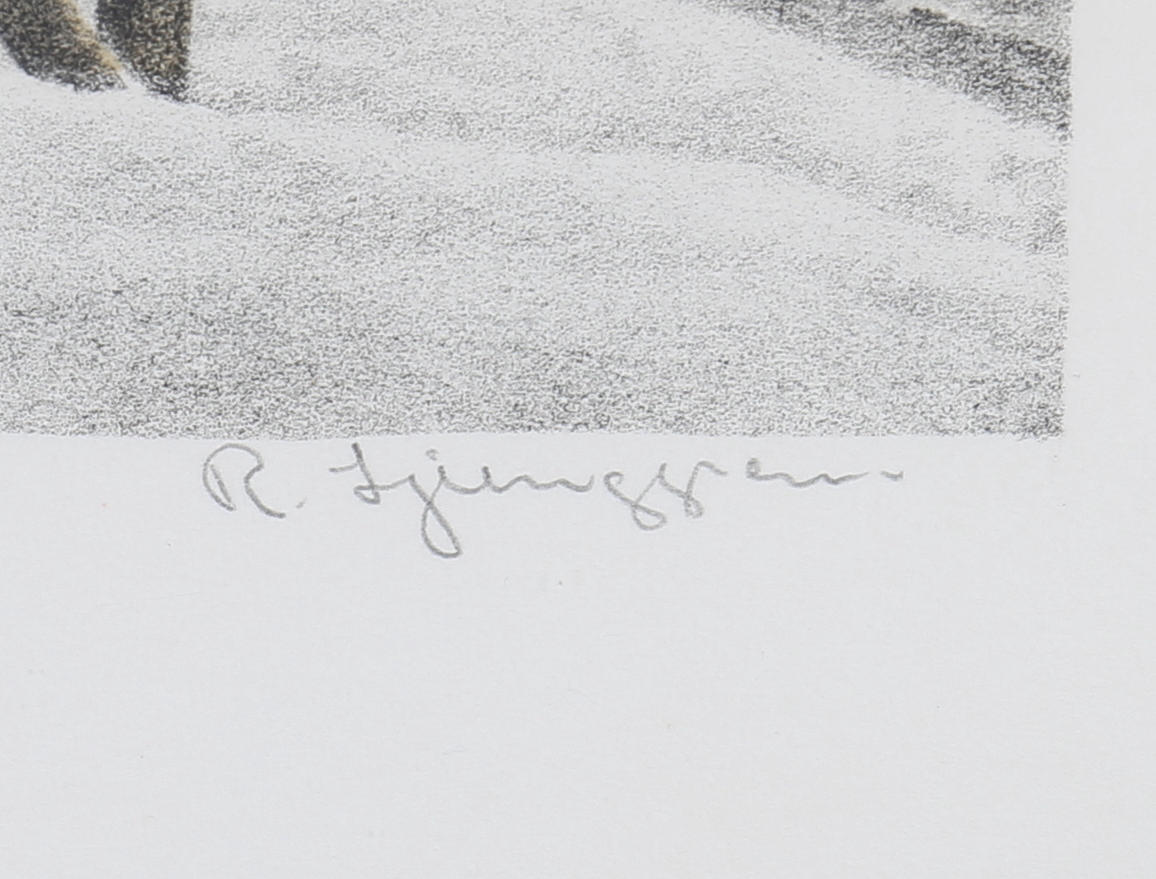 R. Ljunggren